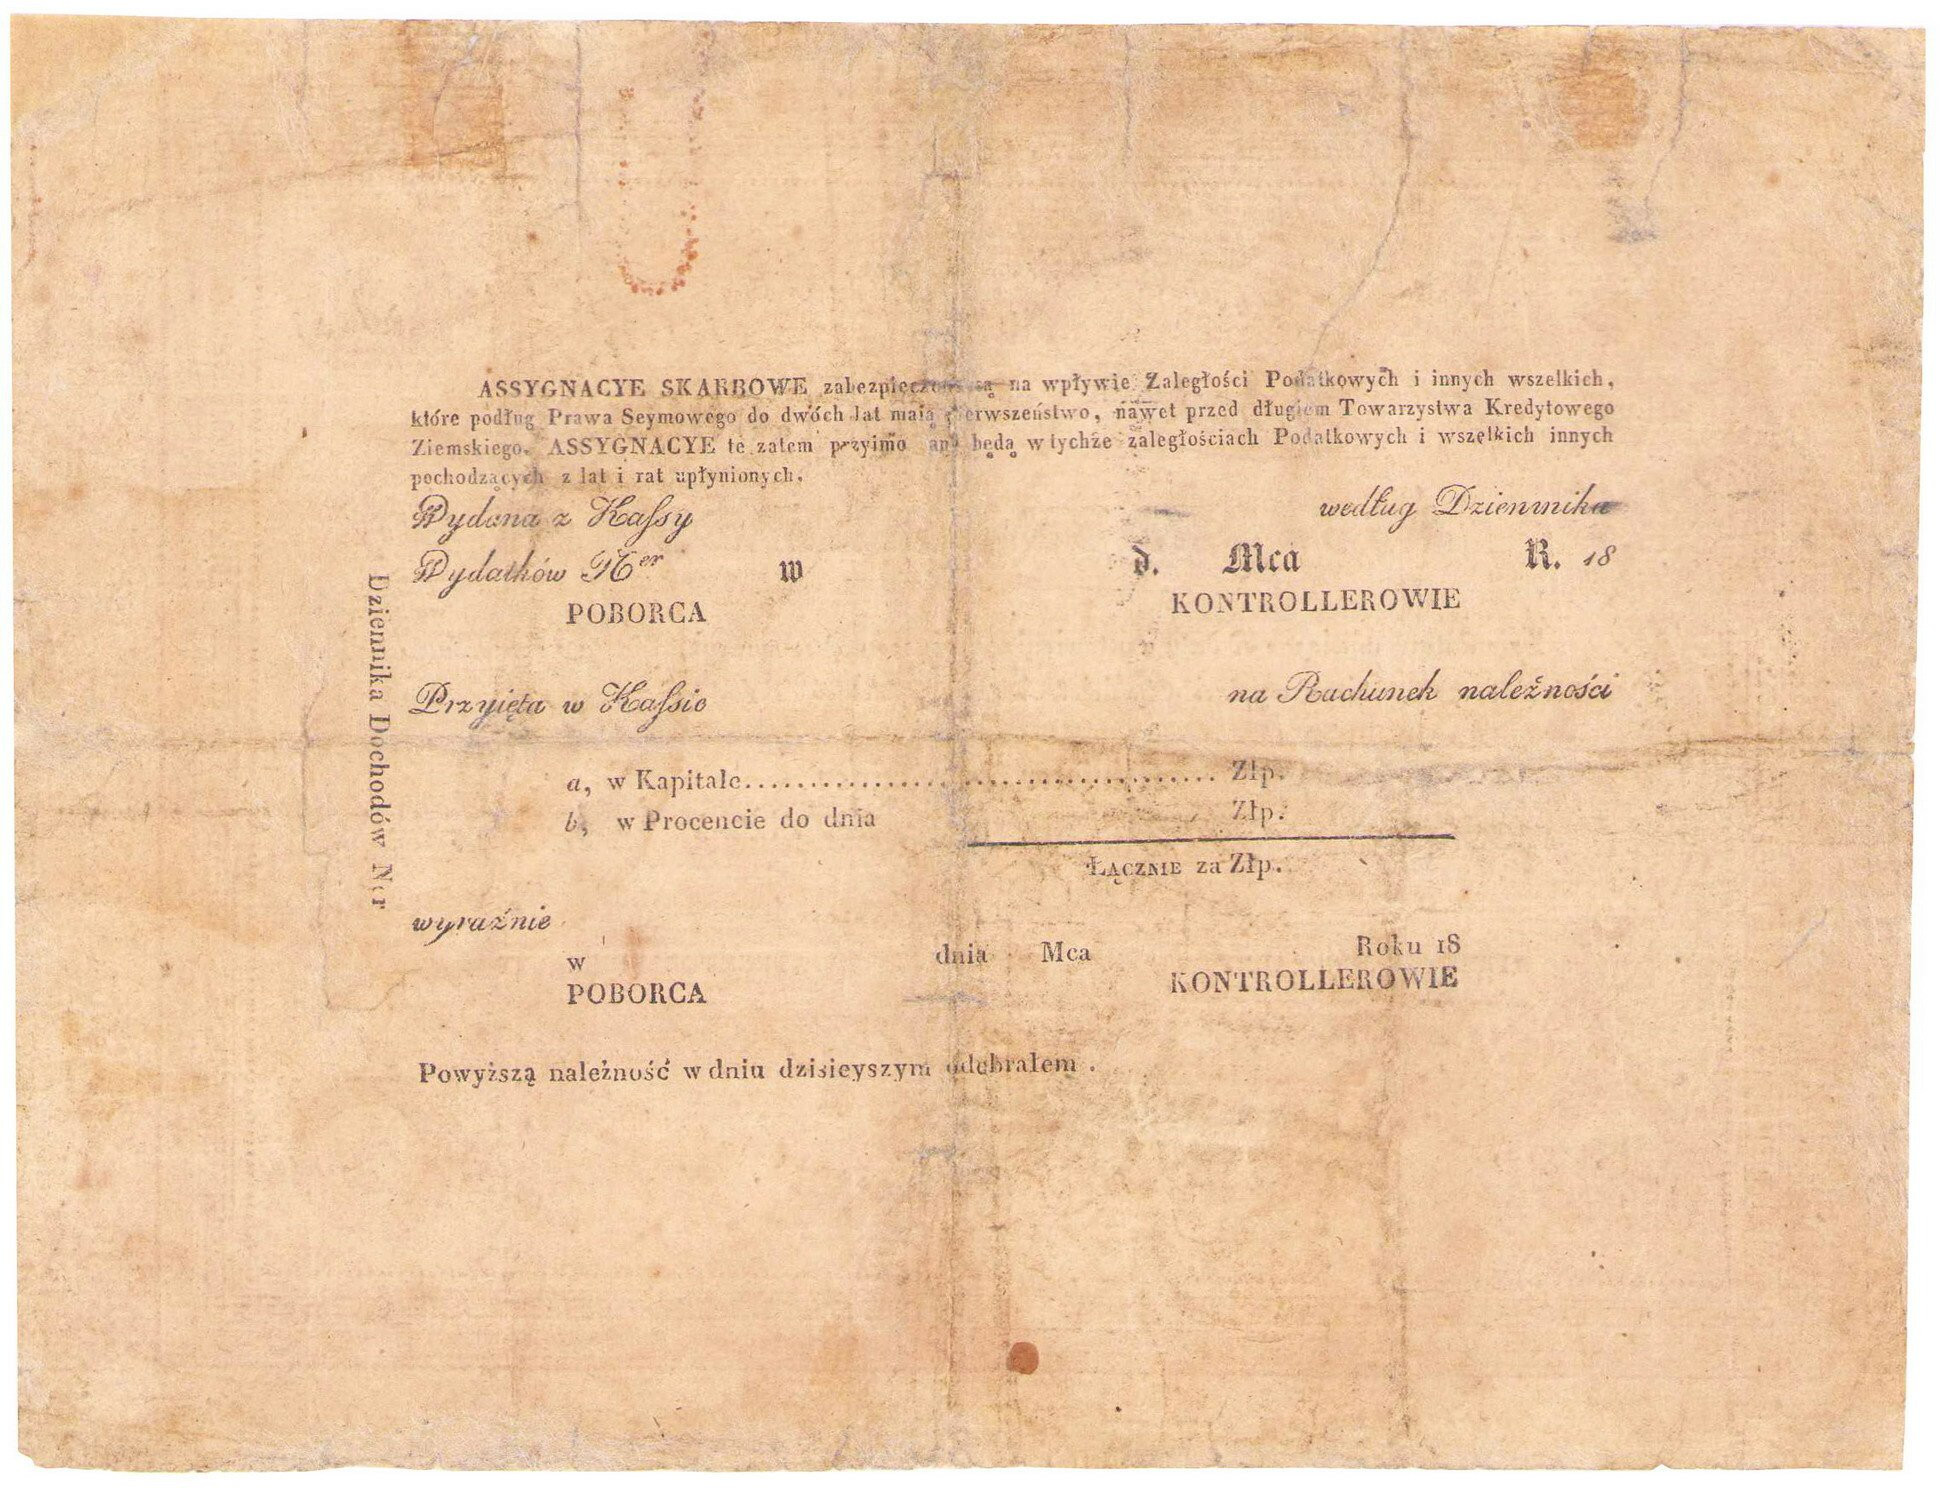 ASSYGNACYE SKARBOWE zabezpieczone są na wpływie Zaległości Podatkowych i innych wszelkich,
które podług Prawa Seymowego do dwóch lat maią pierwszeństwo, nawet przed długiem Towarzystwa Kredytowego
Ziemskiego. ASSYGNACYE te zatem przyimowane będą w tychże zaległościach Podatkowych i wszelkich innych
pochodzących z lat i rat upłynionych.
Wydana z Kassy według Dziennika
Wydatków Ner w d. Mca R. 18
POBORCA KONTROLLEROWIE
Dziennika Dochodów Ner
Przyięta w Kassie na Rachunek należności
a, w Kapitale.................................... Złp.
b, w Procencie do dnia Złp.
ŁĄCZNIE za Złp.
wyraźnie
w dnia Mca Roku 18
POBORCA KONTROLLEROWIE
Powyższą należność w dniu dzisieyszym odebrałem.